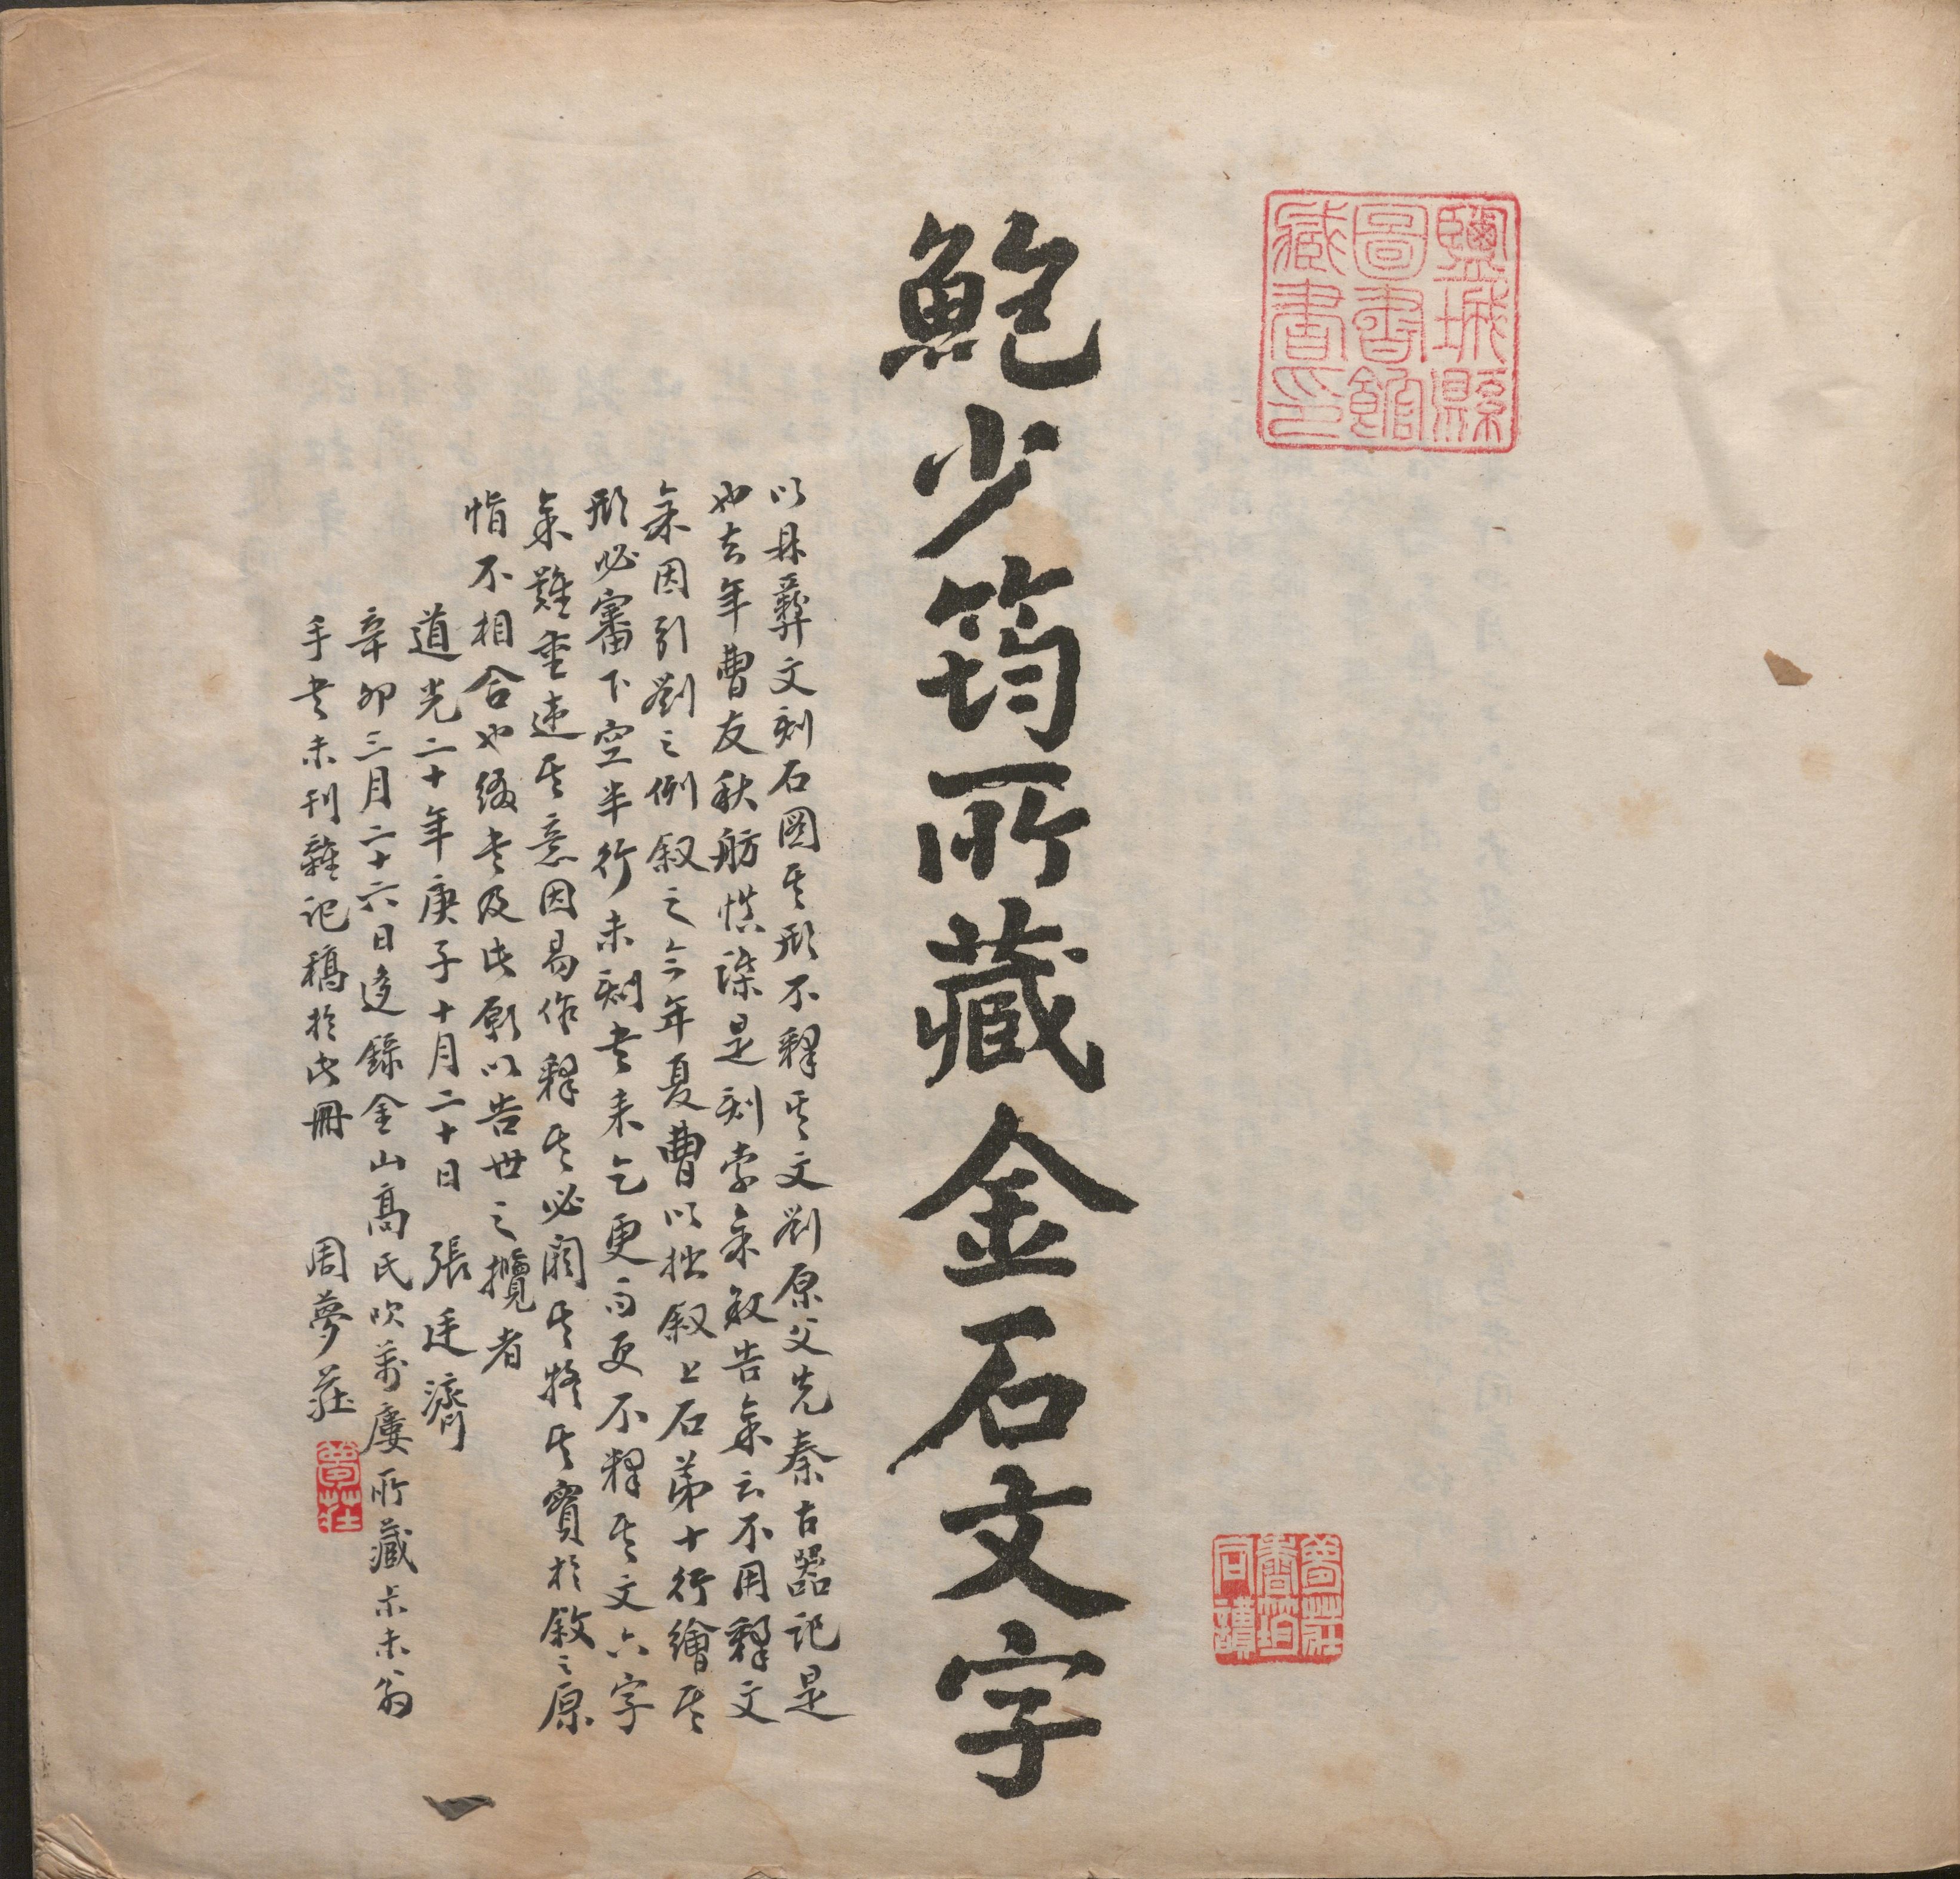 鹽城縣
圖書館
藏書印
夢莊
同讀
鮑少筠所藏金石文字
以鼎彝文刻石圖其形不釋其文劉原父先秦古器記是
也去年曹友秋舫慎譔是刻索余敘告余云不用釋文
余因引劉之例叙之今年夏曹以拙叙上石第十行繪其
形必審下空半行未刻書来乞更而更不釋其文六字
余難重違其意因易作釋其必闕其將其寶於敘之原
恉不相合也綴書及此願以告世之攬者
道光二十年庚子十月二十日 張廷濟
辛卯三月二十六日迻錄金山高氏吹萬廔所藏未未翁
手書未刊雜記稿於此冊 周夢莊
夢莊